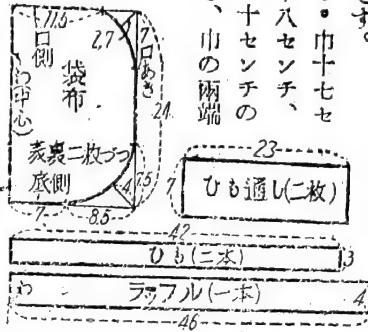 す。
。巾十七セ
八センチ、
十センチの
、巾の兩端
11.5
2.7
7口あき
口側
袋布
(わ中心)
24
表裏二枚づつ
底側
4
7.5
7
8.5
23
7
ひも通し(二枚)
42
ひも(二本)
3
わ
ラッフル(一本)
4
46